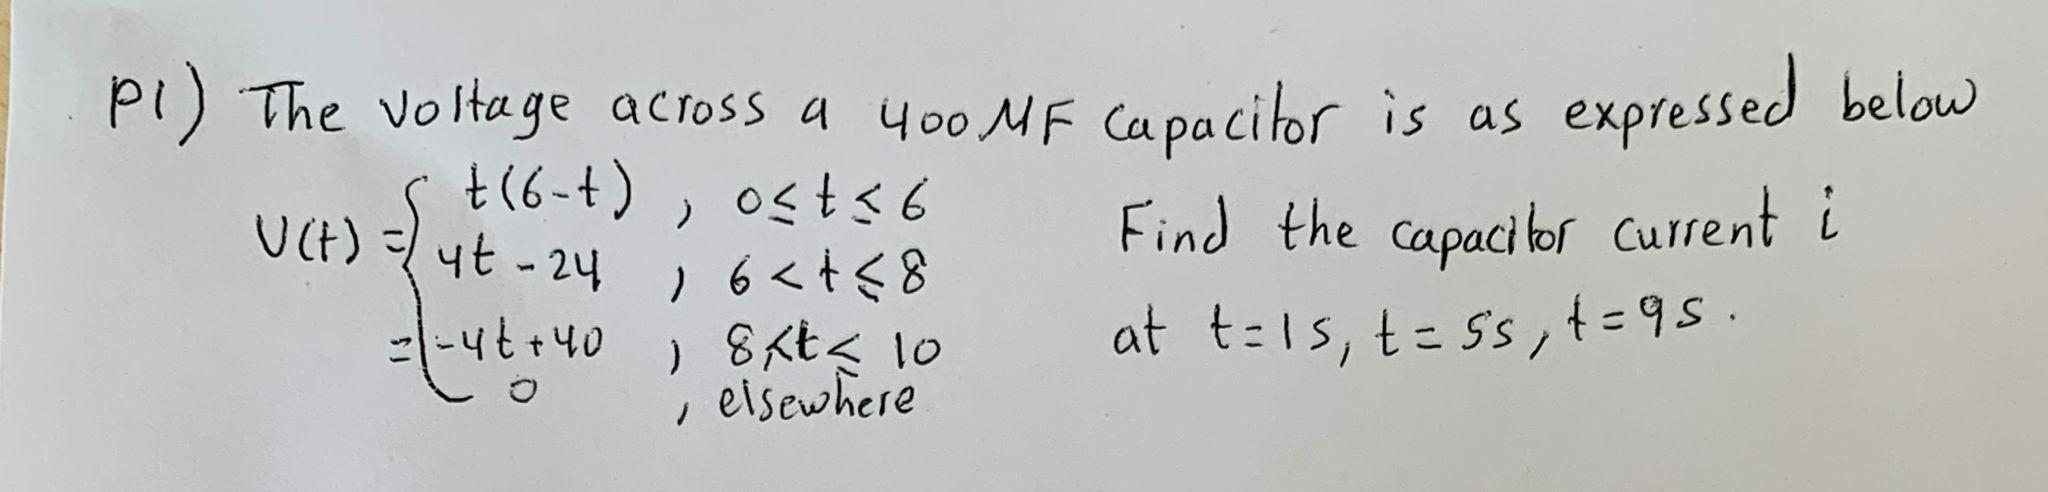 P1) The voltage across a 400 MF capacitor is as expressed below
v(t) = { t(6-t) , 0≤t≤6
4t-24 , 6<t≤8
= -4t+40 , 8<t≤10
0 , elsewhere
Find the capacitor current i
at t=1s, t=5s, t=9s.